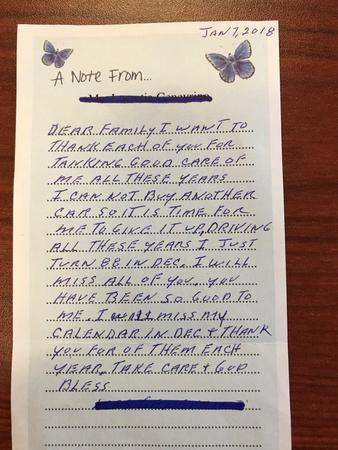 JAN 7, 2018
A Note From...
DEAR FAMILY I WANT TO
THANK EACH OF YOU FOR
TAHKING GOOD CARE OF
ME ALL THESE YEARS
I CAN NOT BUY ANOTHER
CAR SO IT IS TIME FOR
ME TO GIVE IT UP, DRIVING
ALL THESE YEARS I JUST
TURN 88 IN DEC. I WILL
MISS ALL OF YOU, YOU
HAVE BEEN SO GOOD TO
ME. I WILL MISS MY
CALENDAR IN DEC + THANK
YOU FOR OF THEM EACH
YEAR. TAKE CARE + GOD
BLESS